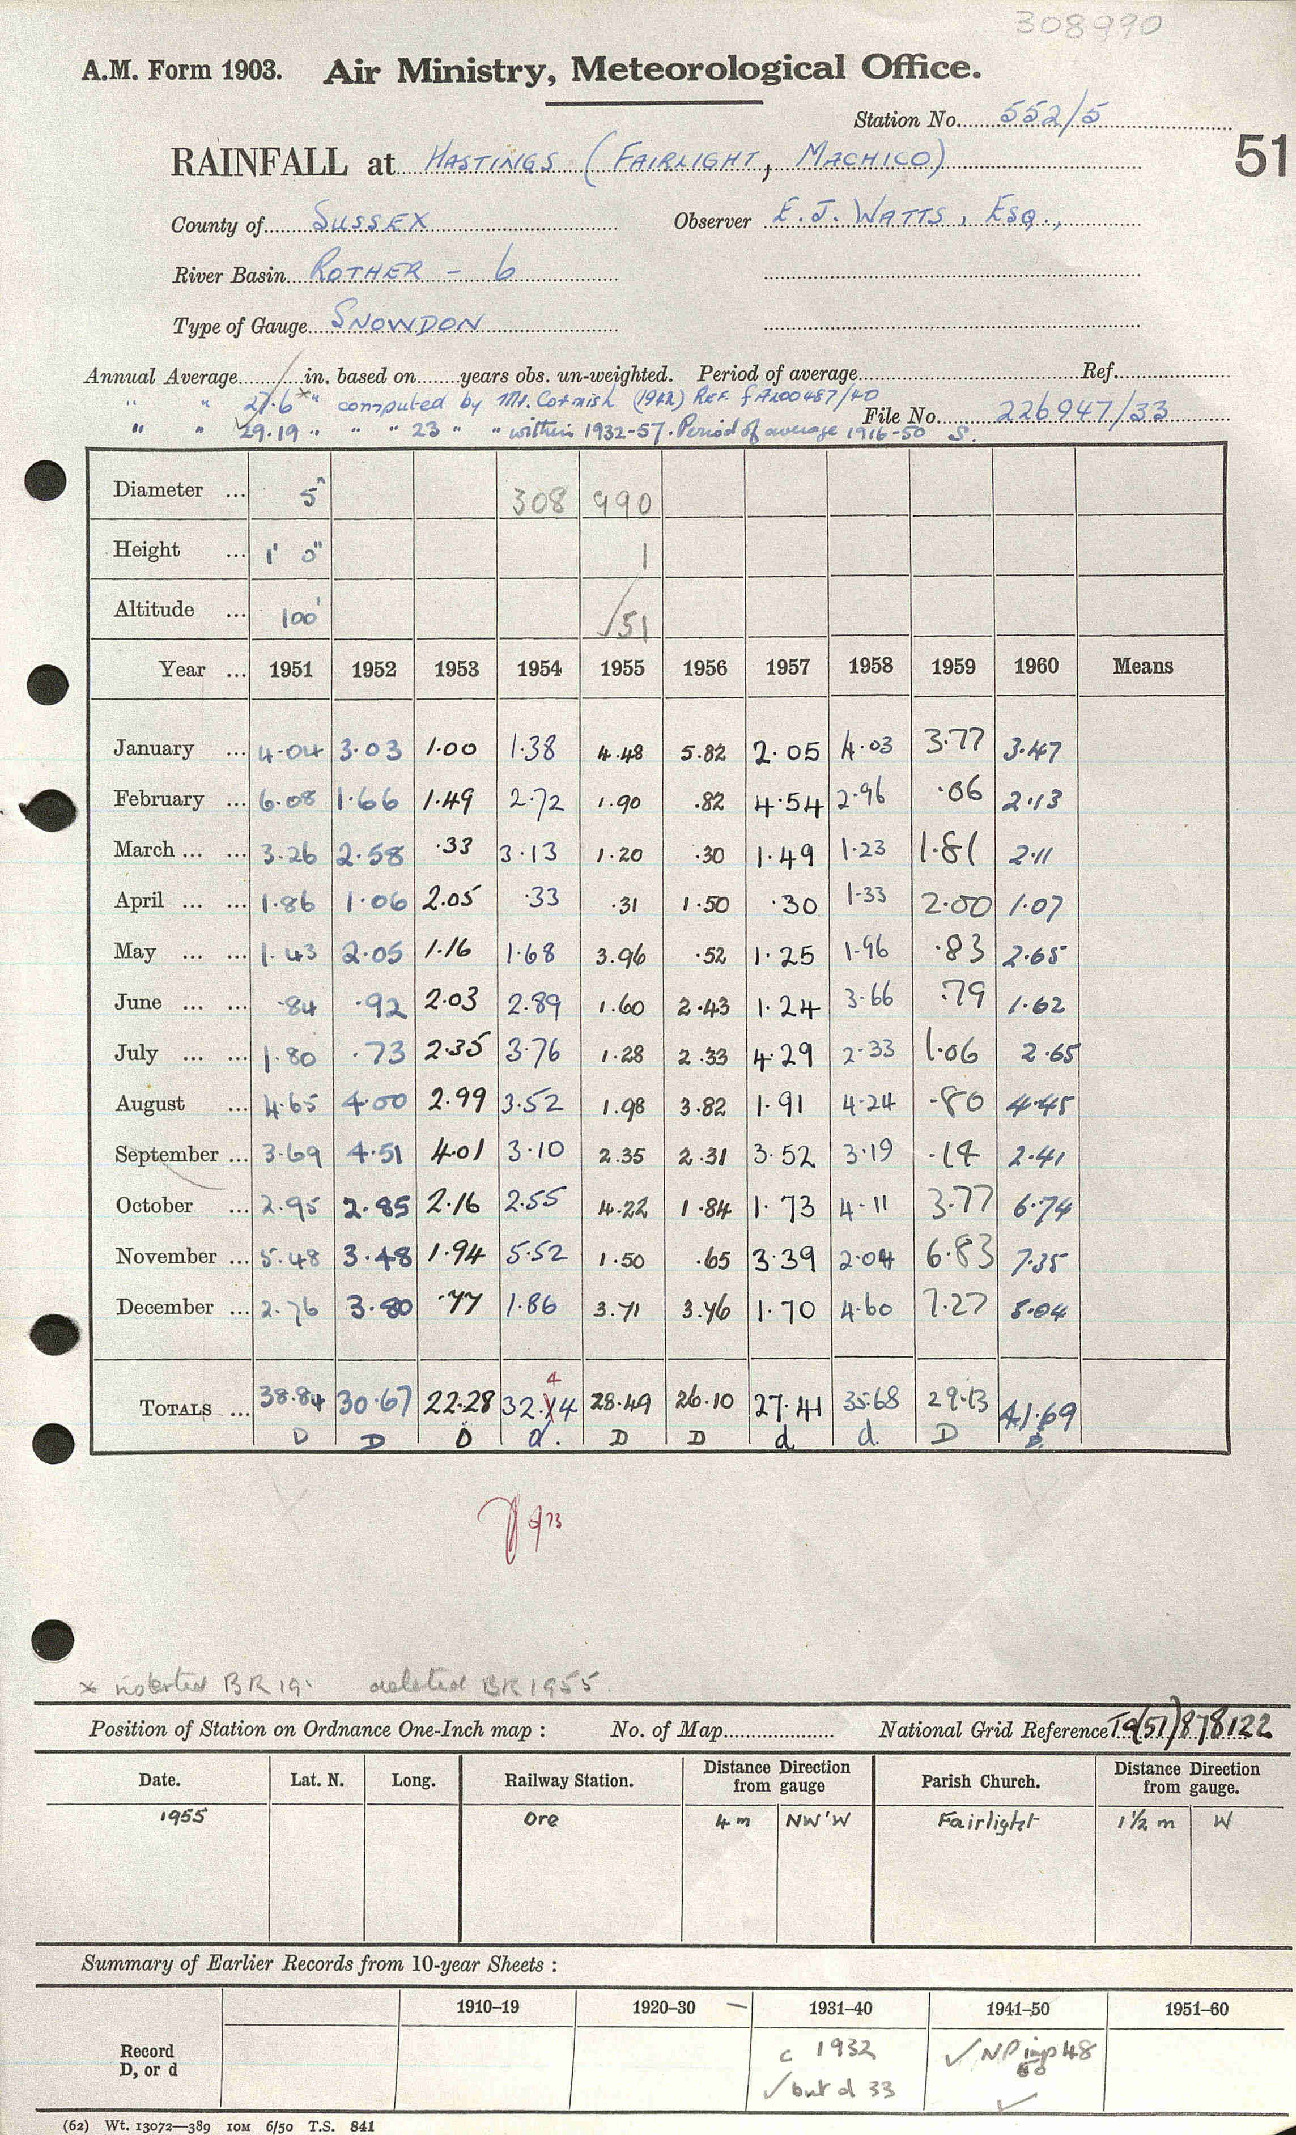 308990
A.M. Form 1903. Air Ministry, Meteorological Office.
Station No. 552/5
RAINFALL at HASTINGS (FAIRLIGHT, MACHICO)
51
County of SUSSEX Observer E. J. WATTS, ESQ.,
River Basin ROTHER - 6
Type of Gauge SNOWDON
Annual Average / in. based on years obs. un-weighted. Period of average Ref.
" " 27.6 x " computed by Mr. Cornish (1942) REF. 200487/40
File No. 226947/33
" " 29.19 " " " 23 " " within 1932-57. Period of average 1916-50 S.
Diameter ... 5" 308 990
Height ... 1' 0" 1
Altitude ... 100' /51
Year ... 1951 1952 1953 1954 1955 1956 1957 1958 1959 1960 Means
January ... 4.04 3.03 1.00 1.38 4.48 5.82 2.05 4.03 3.77 3.47
February ... 6.08 1.66 1.49 2.72 1.90 .82 4.54 2.96 .06 2.13
March ... ... 3.26 2.58 .33 3.13 1.20 .30 1.49 1.23 1.81 2.11
April ... ... 1.86 1.06 2.05 .33 .31 1.50 .30 1.33 2.00 1.07
May ... ... 1.43 2.05 1.16 1.68 3.96 .52 1.25 1.96 .83 2.65
June ... ... .84 .92 2.03 2.89 1.60 2.43 1.24 3.66 .79 1.62
July ... ... 1.80 .73 2.35 3.76 1.28 2.33 4.29 2.33 1.06 2.65
August ... 4.65 4.00 2.99 3.52 1.98 3.82 1.91 4.24 .80 4.45
September ... 3.69 4.51 4.01 3.10 2.35 2.31 3.52 3.19 .14 2.41
October ... 2.95 2.85 2.16 2.55 4.22 1.84 1.73 4.11 3.77 6.74
November ... 5.48 3.48 1.94 5.52 1.50 .65 3.39 2.04 6.83 7.35
December ... 2.76 3.80 .77 1.86 3.71 3.76 1.70 4.60 7.27 5.04
4
TOTALS ... 38.84 30.67 22.28 32.14 28.49 26.10 27.41 35.68 29.13 41.69
D D D d. D D d d. D D.
x inserted BR 19 deleted BR 1955
Position of Station on Ordnance One-Inch map : No. of Map National Grid Reference TQ(51)878122
Date. Lat. N. Long. Railway Station. Distance from gauge Direction Parish Church. Distance from gauge. Direction
1955 Ore 4 m NW'W Fairlight 1½ m W
Summary of Earlier Records from 10-year Sheets :
1910–19 1920–30 – 1931–40 1941–50 1951–60
Record
D, or d
c 1932 ✓ NP inp 48
50
✓ but d 33 ✓
(62) Wt. 13072—389 10M 6/50 T.S. 841